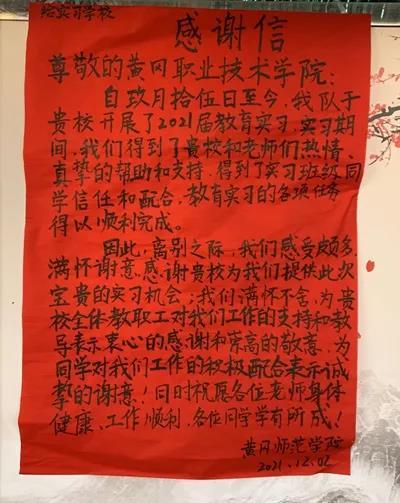 给实习学校
感谢信
尊敬的黄冈职业技术学院：
自玖月拾伍日至今，我队于
贵校开展了2021届教育实习，实习期
间，我们得到了贵校和老师们热情
真挚的帮助和支持，得到了实习班级同
学信任和配合，教育实习的各项任务
得以顺利完成。
因此，离别之际，我们感受颇多，
满怀谢意，感谢贵校为我们提供此次
宝贵的实习机会；我们满怀不舍，为贵
校全体教职工对我们工作的支持和教
导表示衷心的感谢和崇高的敬意，为
同学对我们工作的积极配合表示诚
挚的谢意！同时祝愿各位老师身体
健康、工作顺利，各位同学学有所成！
黄冈师范学院
2021.12.02